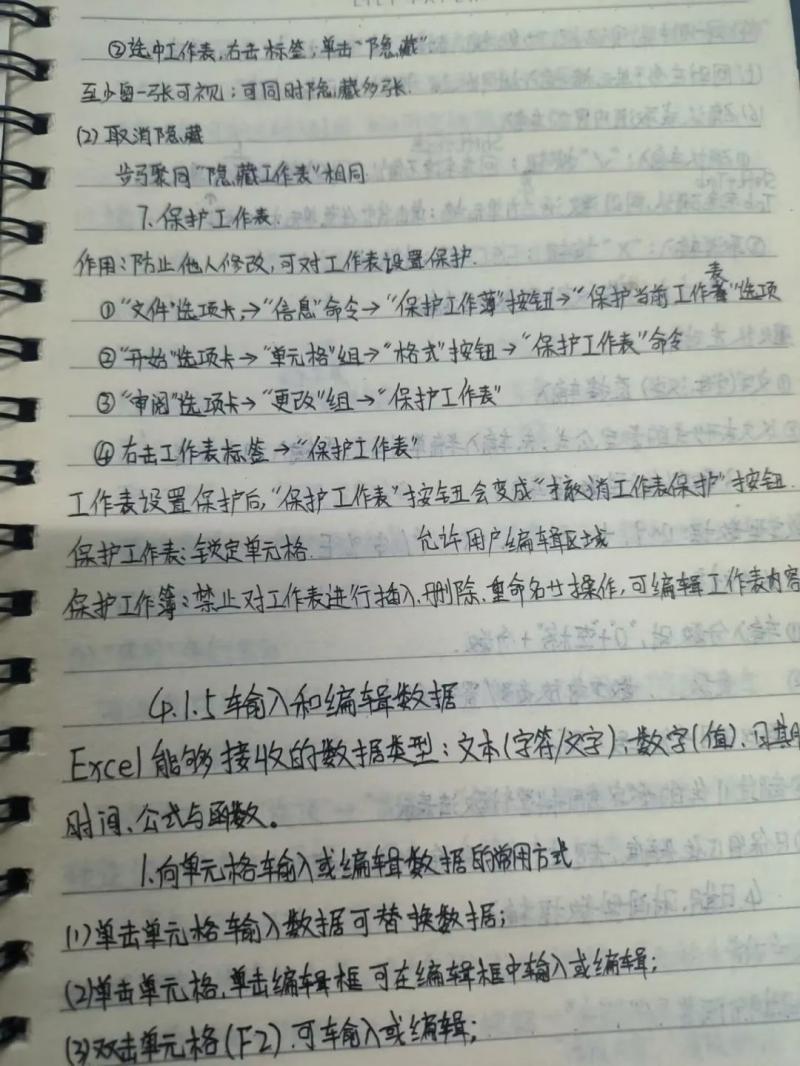 ②选中工作表,右击标签,单击“隐藏”
至少留一张可视;可同时隐藏多张.
(2)取消隐藏
步骤同“隐藏工作表”相同
7.保护工作表.
作用:防止他人修改,可对工作表设置保护.
①“文件”选项卡,→“信息”命令→“保护工作薄”按钮→“保护当前工作表”选项
②“开始”选项卡→“单元格”组→“格式”按钮→“保护工作表”命令
③“审阅”选项卡→“更改”组→“保护工作表”
④右击工作表标签→“保护工作表”
工作表设置保护后,“保护工作表”按钮会变成“撤消工作表保护”按钮.
保护工作表:锁定单元格. 允许用户编辑区域
保护工作簿:禁止对工作表进行插入、删除、重命名廿操作,可编辑工作表内容
4.1.5输入和编辑数据
Excel能够接收的数据类型:文本(字符/文字)、数字(值)、日期
时间、公式与函数。
1.向单元格输入或编辑数据的常用方式
(1)单击单元格输入数据可替换数据;
(2)单击单元格,单击编辑框可在编辑框中输入或编辑;
(3)双击单元格(F2)可输入或编辑;